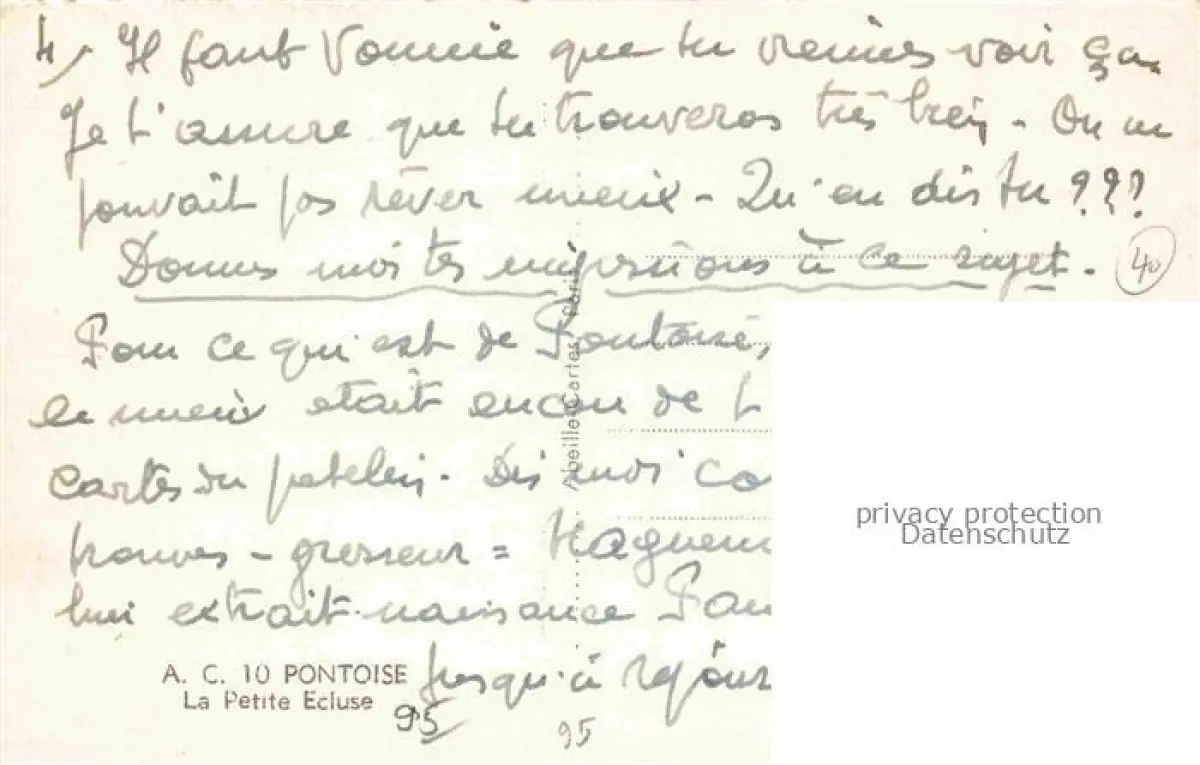 4/ Il faut Vonnie que tu viennes voir ça.
Je t'assure que tu trouveras très bien - On ne
pouvait pas rêver mieux - Qu'en dis tu ???
Donnes moi tes impressions à ce sujet. 40
Pour ce qui est de Pontoise,
le mieux était encore de t
cartes du patelin. Dis moi co
trouves - grosseur =
lui extrait naissance
jusqu'à
privacy protection
Datenschutz
Abeille-Cartes - Paris
A. C. 10 PONTOISE
La Petite Ecluse
95
95